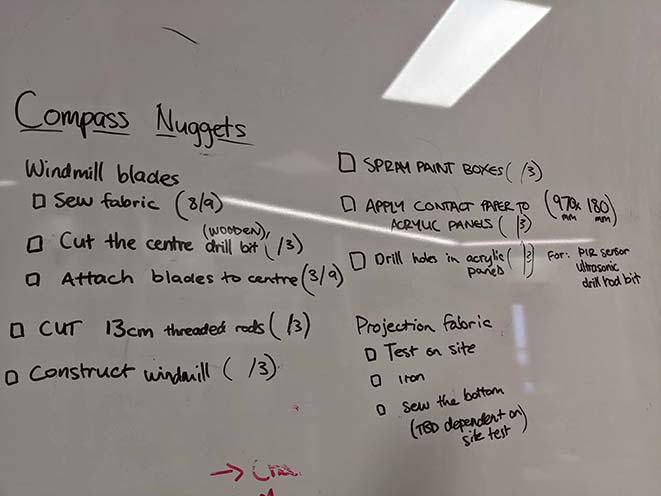 Compass Nuggets
Windmill blades
Sew fabric (8/9)
Cut the centre (WOODEN) drill bit (/3)
Attach blades to centre (3/9)
CUT 13cm threaded rods (/3)
Construct windmill ( /3)
SPRAY PAINT BOXES ( /3)
APPLY CONTACT PAPER TO (970 x 180)
mm mm
ACRYLIC PANELS ( /3)
Drill holes in acrylic ( /3) For: PIR sensor
panels ultrasonic
drill rod bit
Projection fabric
Test on site
iron
Sew the bottom
(TBD dependent on
site test)